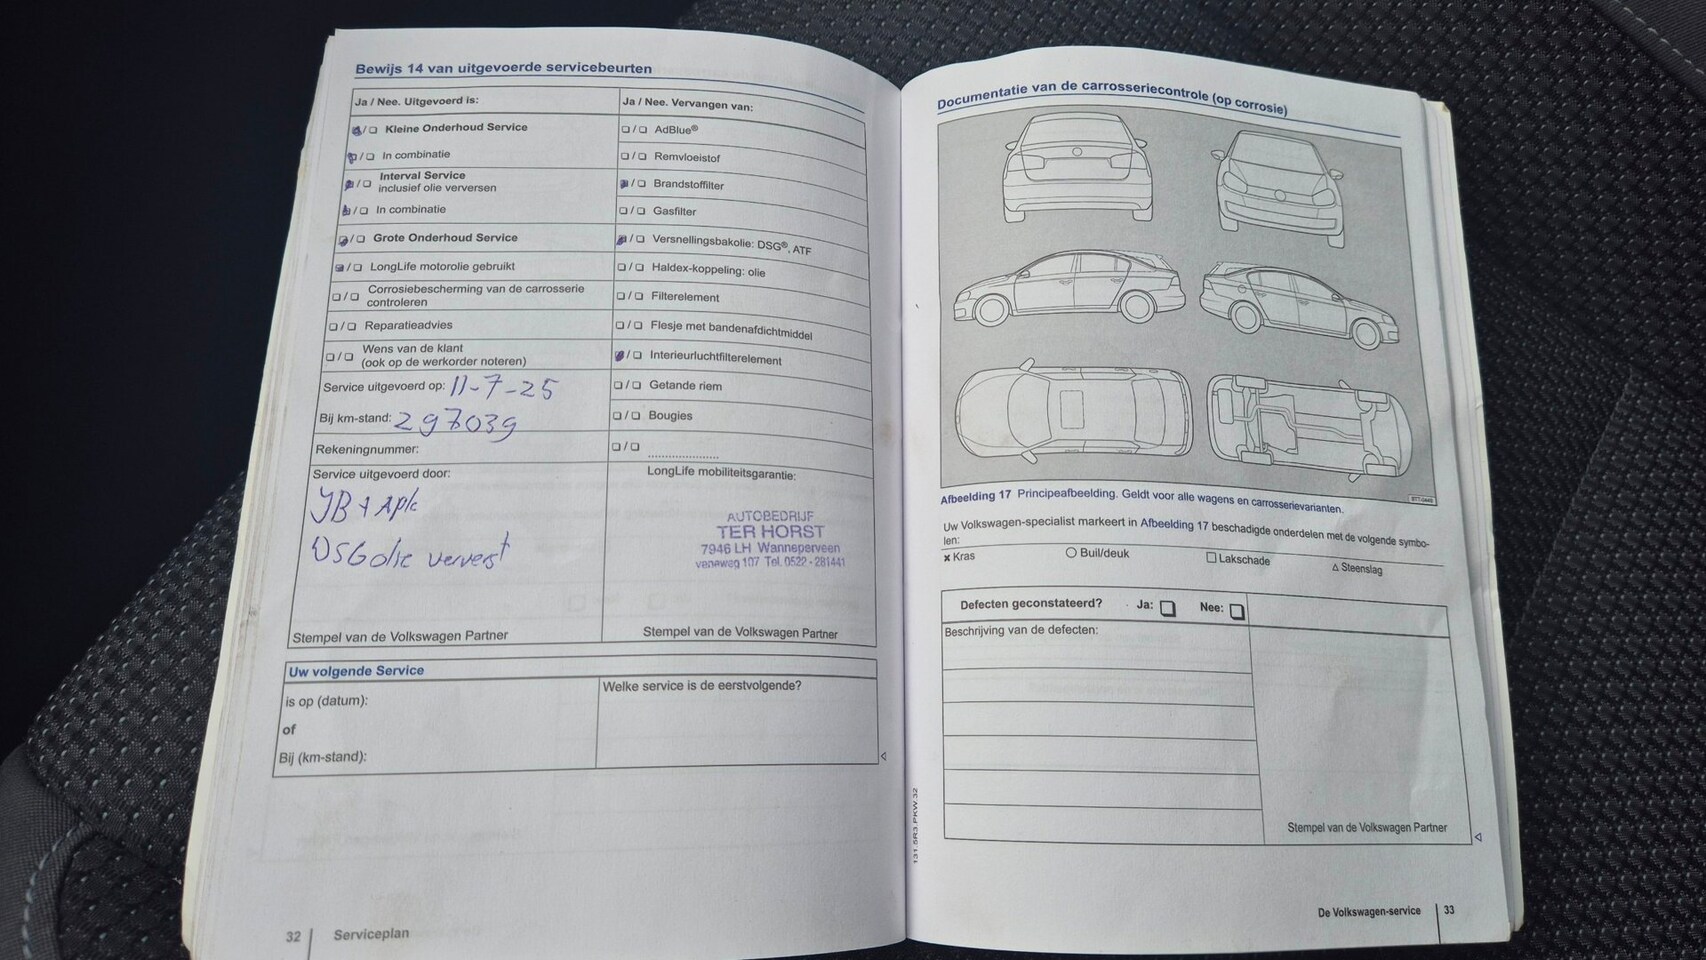 Bewijs 14 van uitgevoerde servicebeurten
Ja / Nee. Uitgevoerd is:
Kleine Onderhoud Service
In combinatie
Interval Service
inclusief olie verversen
In combinatie
Grote Onderhoud Service
LongLife motorolie gebruikt
Corrosiebescherming van de carrosserie
controleren
Reparatieadvies
Wens van de klant
(ook op de werkorder noteren)
Service uitgevoerd op: 11-7-25
Bij km-stand: 297039
Rekeningnummer:
Service uitgevoerd door:
JB + APK
DSG olie ververst
Stempel van de Volkswagen Partner
Ja / Nee. Vervangen van:
AdBlue®
Remvloeistof
Brandstoffilter
Gasfilter
Versnellingsbakolie: DSG®, ATF
Haldex-koppeling: olie
Filterelement
Flesje met bandenafdichtmiddel
Interieurluchtfilterelement
Getande riem
Bougies
LongLife mobiliteitsgarantie:
AUTOBEDRIJF
TER HORST
7946 LH Wanneperveen
veneweg 107 Tel. 0522 - 281441
Stempel van de Volkswagen Partner
Uw volgende Service
is op (datum):
of
Bij (km-stand):
Welke service is de eerstvolgende?
32 Serviceplan
Documentatie van de carrosseriecontrole (op corrosie)
Afbeelding 17 Principeafbeelding. Geldt voor alle wagens en carrosserievarianten.
Uw Volkswagen-specialist markeert in Afbeelding 17 beschadigde onderdelen met de volgende symbo-
len:
Kras
Buil/deuk
Lakschade
Steenslag
Defecten geconstateerd? Ja: Nee:
Beschrijving van de defecten:
Stempel van de Volkswagen Partner
131.5R3.PKW.32
De Volkswagen-service 33